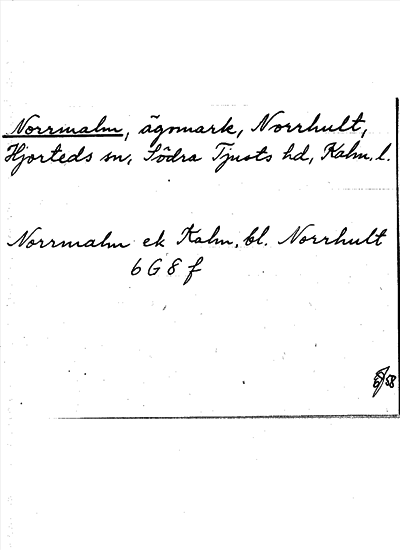 Norrmalm, ägomark, Norrhult,
Hjorteds sn, Södra Tjusts hd, Kalm. l.
Norrmalm ek Kalm. bl. Norrhult
6 G 8 f